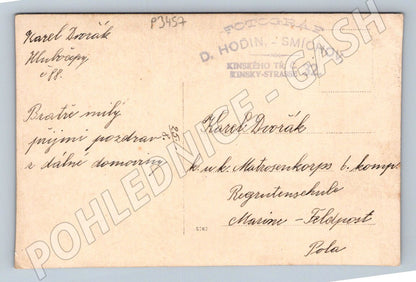 Karel Dvořák
Hlubočepy
č 88.
P3457
FOTOGRAF
D. HODINA - SMÍCHOV
KINSKÉHO TŘ.
KINSKY-STRASSE
Bratře milý
přijmi pozdrav
z dálné domoviny
Karel Dvořák
k. u. k. Matrosenkorps 6. komp.
Regrutenschule
Marine - Feldpost
Pola
POHLEDNICE - CASH